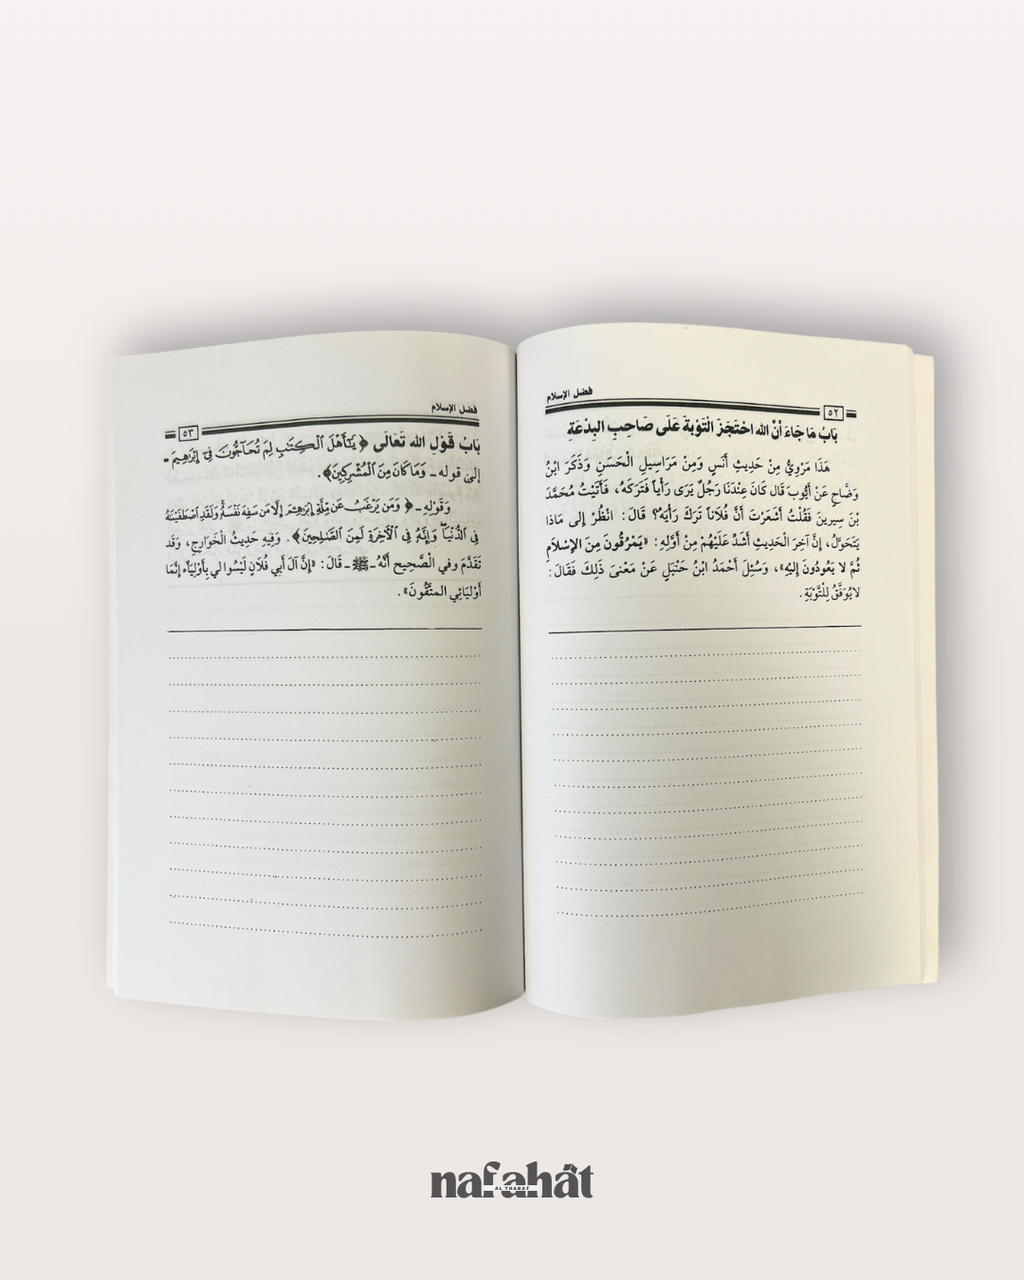 فضل الإسلام
٥٢
بَابُ مَا جَاءَ أنَّ الله احْتَجَزَ الْتَوْبةَ عَلَى صَاحِبِ البِدْعَةِ
هَذَا مَرْوِيٌّ مِنْ حَدِيثِ أَنَسٍ وَمِنْ مَرَاسِيلِ الْحَسَنِ وَذَكَرَ ابْنُ
وَضَّاحٍ عَنْ أَيُّوبَ قَال كَانَ عِنْدَنَا رَجُلٌ يَرَى رَأْياً فَتَرَكَهُ، فَأَتَيْتُ مُحَمَّدَ
بْنَ سِيرينَ فَقُلْتُ أَشَعَرْتَ أَنَّ فُلَاناً تَرَكَ رَأْيَهُ؟ قَالَ: انْظُرْ إلى مَاذا
يَتَحَوَّلُ، إِنَّ آخِرَ الْحَدِيثِ أَشَدُّ عَلَيْهِمْ مِنْ أَوَّلِهِ: «يَمْرُقُونَ مِنَ الإِسْلَامِ
ثُمَّ لا يَعُودُونَ إِليْهِ»، وَسُئِلَ أَحْمَدُ ابْنُ حَنْبَلٍ عَنْ مَعْنَى ذَلِكَ فَقَالَ:
لا يُوَفَّقُ لِلتَّوْبَةِ.
فضل الإسلام
٥٣
بَابُ قَوْلِ الله تَعَالَى ﴿ يَٰٓأَهْلَ ٱلْكِتَٰبِ لِمَ تُحَآجُّونَ فِىٓ إِبْرَٰهِيمَ ـ
إلىٰ قوله ـ وَمَا كَانَ مِنَ ٱلْمُشْرِكِينَ﴾.
وَقَوْلِهِ ـ ﴿ وَمَن يَرْغَبُ عَن مِّلَّةِ إِبْرَٰهِـۧمَ إِلَّا مَن سَفِهَ نَفْسَهُۥ وَلَقَدِ ٱصْطَفَيْنَٰهُ
فِى ٱلدُّنْيَا وَإِنَّهُۥ فِى ٱلْأَخِرَةِ لَمِنَ ٱلصَّٰلِحِينَ﴾. وَفِيهِ حَدِيثُ الْخَوَارِجِ، وَقَد
تَقَدَّمَ وفي الْصَّحِيحِ أَنَّهُ ـ ﷺ ـ قَالَ: «إِنَّ آلَ أَبي فُلَانٍ لَيْسُوا لي بِأَوْلِيَآء إنَّمَا
أَوْلِيَائِي المتَّقُونَ».
nafahāt
AL THABAT